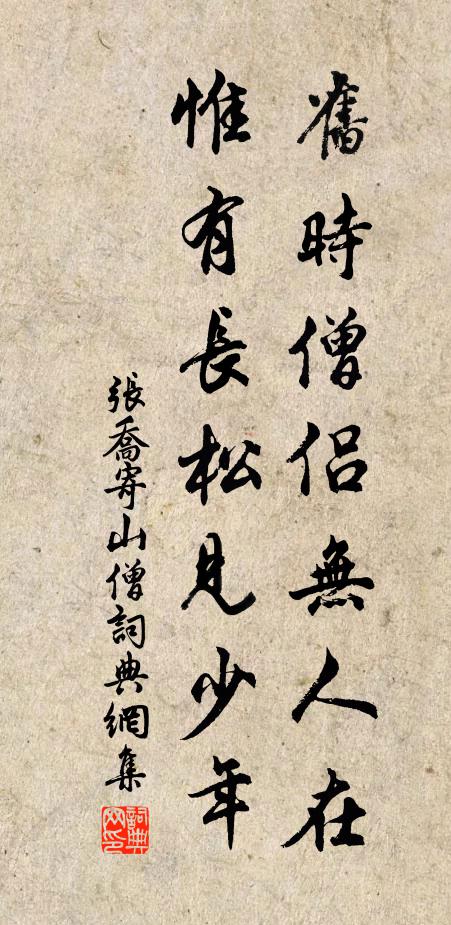 舊時僧侶無人在
惟有長松見少年
張喬寄山僧詞典網集
詞典网印